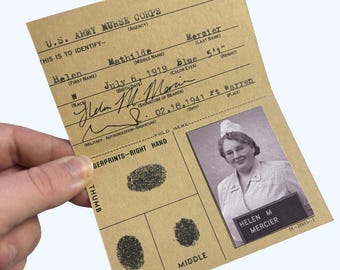 U.S. ARMY NURSE CORPS
(AGENCY)
THIS IS TO IDENTIFY—
Helen Mathilde Mercier
(FIRST NAME) (MIDDLE NAME) (LAST NAME)
W July 6, 1919 Blue 5'1"
(BIRTHDATE) (COLOR EYES)
Helen M. Mercier
(SIGNATURE OF BEARER)
02.18.1941 Ft Warren
(MILITARY AUTHORIZATION—SIGNATURE) (DATE) (PLACE)
FOLD HERE
FINGERPRINTS—RIGHT HAND
THUMB
MIDDLE
HELEN M
MERCIER